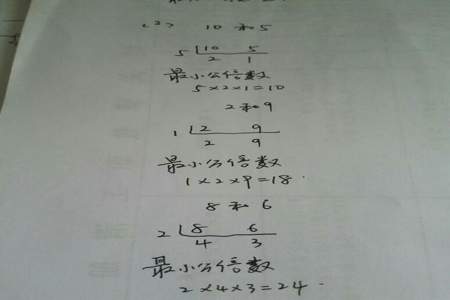 (2) 10和5
5 10 5
2 1
最小公倍数
5×2×1=10
2和9
1 2 9
2 9
最小公倍数
1×2×9=18.
8和6
2 8 6
4 3
最小公倍数
2×4×3=24.